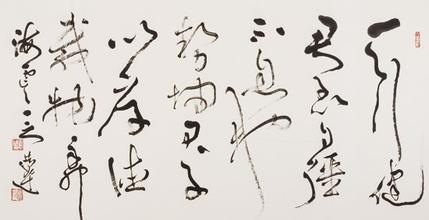 天行健
君子以自彊
不息地
勢坤君子
以厚德
載物